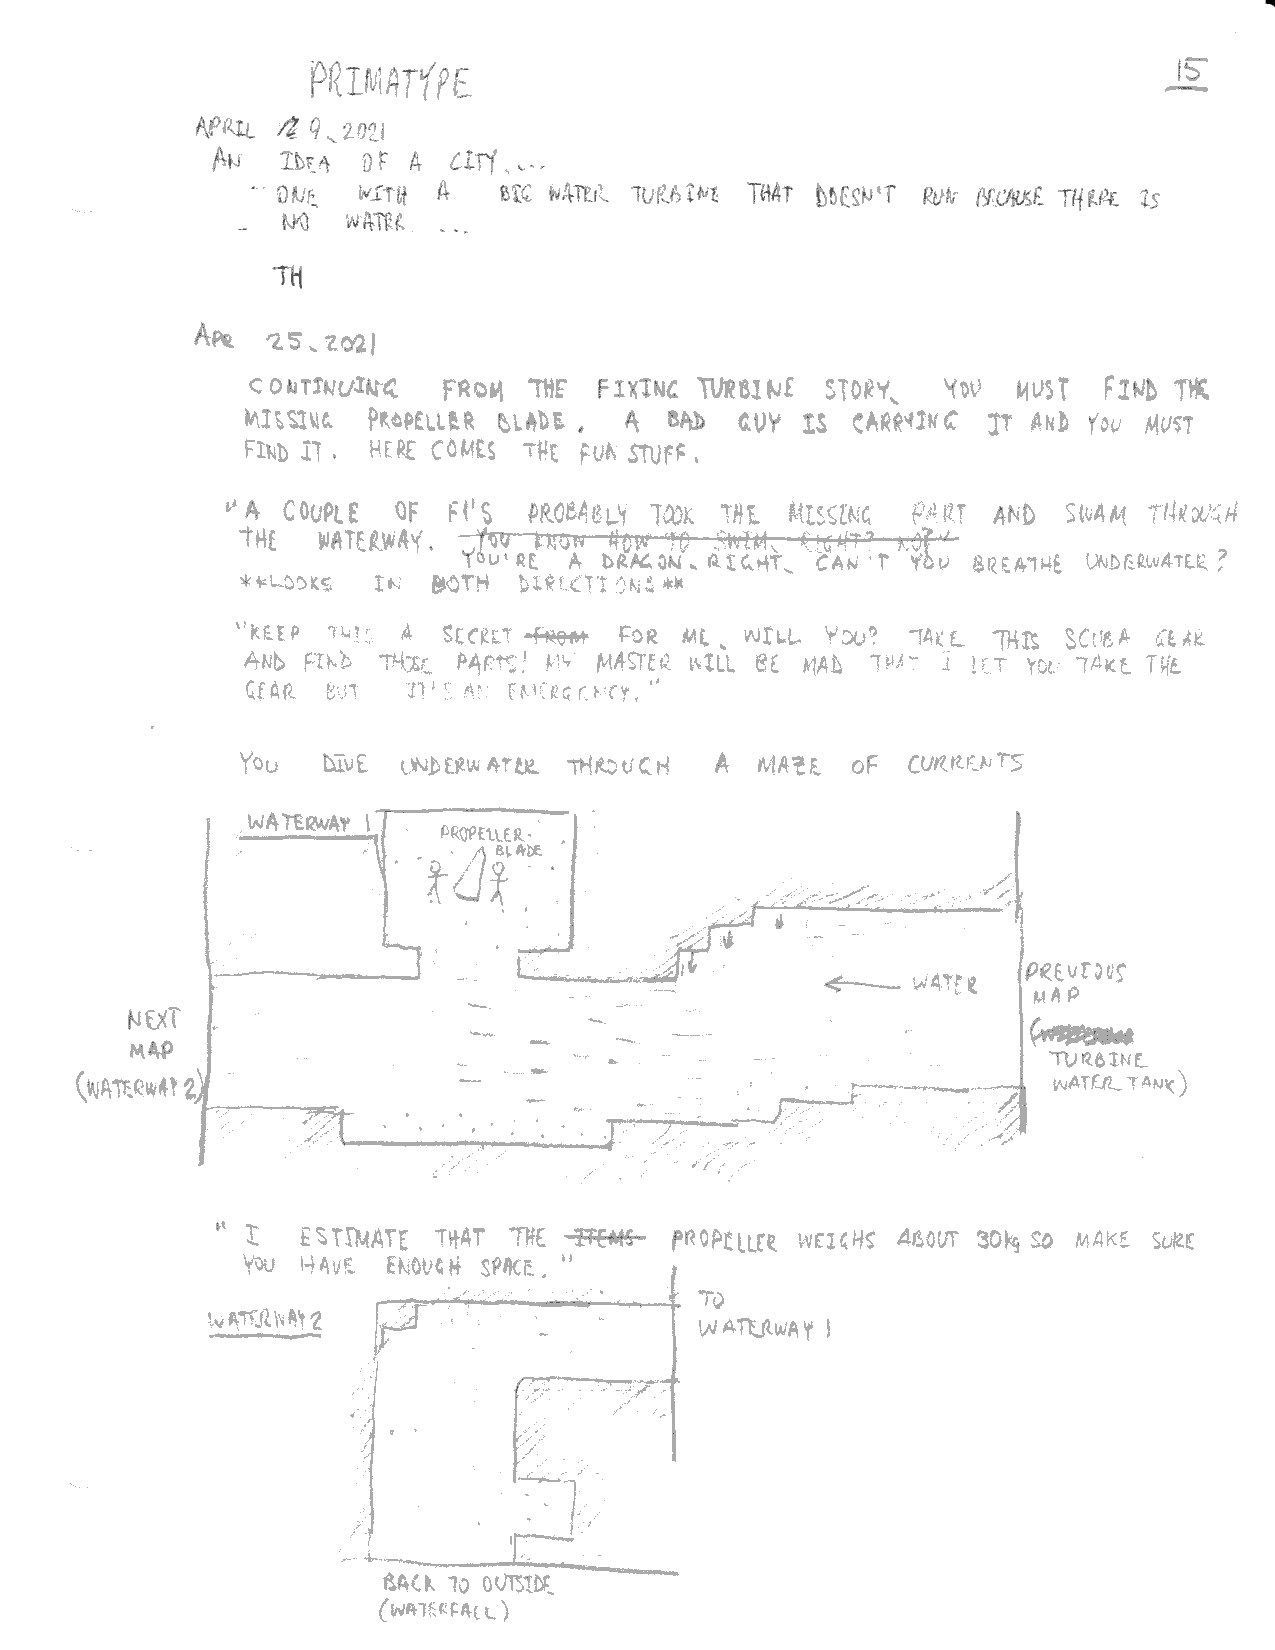 PRIMATYPE
15
APRIL 29, 2021
AN IDEA OF A CITY....
- ONE WITH A BIG WATER TURBINE THAT DOESN'T RUN BECAUSE THERE IS
- NO WATER....
TH
APR 25, 2021
CONTINUING FROM THE FIXING TURBINE STORY, YOU MUST FIND THE
MISSING PROPELLER BLADE. A BAD GUY IS CARRYING IT AND YOU MUST
FIND IT. HERE COMES THE FUN STUFF.
"A COUPLE OF PROBABLY TOOK THE MISSING PART AND SWAM THROUGH
THE WATERWAY. YOU KNOW HOW TO SWIM, RIGHT? NO?"
YOU'RE A DRAGON, RIGHT, CAN'T YOU BREATHE UNDERWATER?
**LOOKS IN BOTH DIRECTIONS**
"KEEP THIS A SECRET FROM FOR ME, WILL YOU? TAKE THIS SCUBA GEAR
AND FIND THOSE PARTS! MY MASTER WILL BE MAD THAT I LET YOU TAKE THE
GEAR BUT IT'S AN EMERGENCY."
YOU DIVE UNDERWATER THROUGH A MAZE OF CURRENTS
WATERWAY 1
PROPELLER
BLADE
WATER
PREVIOUS
MAP
(
TURBINE
WATER TANK)
NEXT
MAP
(WATERWAY 2)
"I ESTIMATE THAT THE ITEMS PROPELLER WEIGHS ABOUT 30kg SO MAKE SURE
YOU HAVE ENOUGH SPACE."
WATERWAY 2
TO
WATERWAY 1
BACK TO OUTSIDE
(WATERFALL)